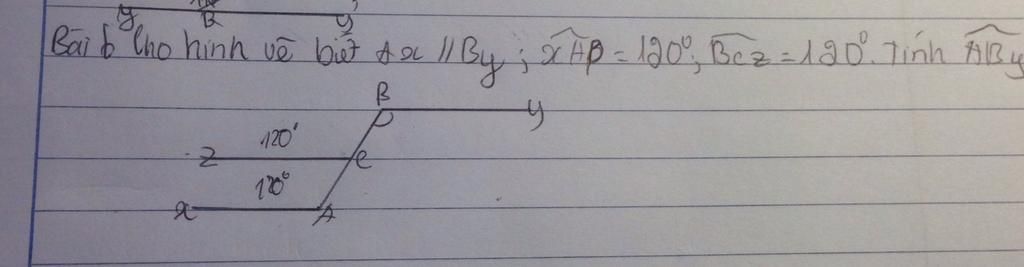 y B y'
Bài 6 Cho hình vẽ biết Ax // By ; xAB = 120°, BCz = 120°. Tính ABy
B
y
120°
z C
120°
x A